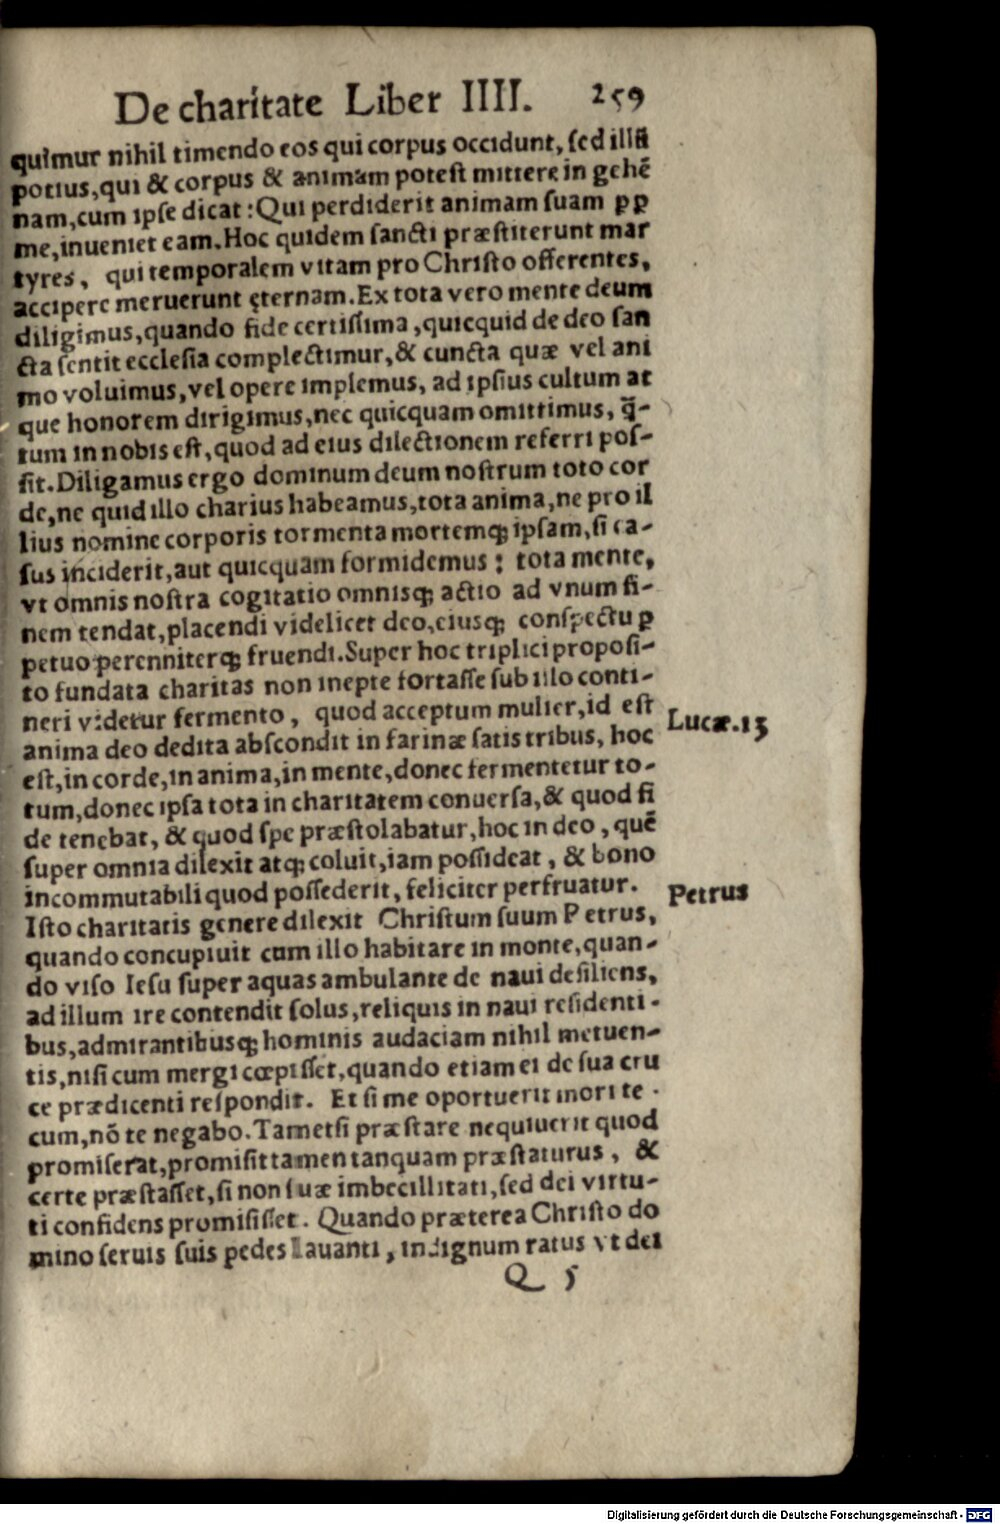 De charitate Liber IIII. 259
quimur nihil timendo eos qui corpus occidunt, sed illũ
potius, qui & corpus & animam potest mittere in gehẽ
nam, cum ipse dicat : Qui perdiderit animam suam ꝓꝑ
me, inueniet eam. Hoc quidem sancti præstiterunt mar
tyres, qui temporalem vitam pro Christo offerentes,
accipere meruerunt ęternam. Ex tota vero mente deum
diligimus, quando fide certissima, quicquid de deo san
cta sentit ecclesia complectimur, & cuncta quæ vel ani
mo voluimus, vel opere implemus, ad ipsius cultum at
que honorem dirigimus, nec quicquam omittimus, q̃-
tum in nobis est, quod ad eius dilectionem referri pos-
sit. Diligamus ergo dominum deum nostrum toto cor
de, ne quid illo charius habeamus, tota anima, ne pro il
lius nomine corporis tormenta mortemq; ipsam, si ca-
sus inciderit, aut quicquam formidemus : tota mente,
vt omnis nostra cogitatio omnisq; actio ad vnum fi-
nem tendat, placendi videlicet deo, eiusq; conspectu ꝑ
petuo perenniterq; fruendi. Super hoc triplici proposi-
to fundata charitas non inepte fortasse sub illo conti-
neri videtur fermento, quod acceptum mulier, id est
Lucæ.13
anima deo dedita abscondit in farinæ satis tribus, hoc
est, in corde, in anima, in mente, donec fermentetur to-
tum, donec ipsa tota in charitatem conuersa, & quod fi
de tenebat, & quod spe præstolabatur, hoc in deo, quẽ
super omnia dilexit atq; coluit, iam possideat, & bono
incommutabili quod possederit, feliciter perfruatur.
Petrus
Isto charitatis genere dilexit Christum suum Petrus,
quando concupiuit cum illo habitare in monte, quan-
do viso Iesu super aquas ambulante de naui desiliens,
ad illum ire contendit solus, reliquis in naui residenti-
bus, admirantibusq; hominis audaciam nihil metuen-
tis, nisi cum mergi cœpisset, quando etiam ei de sua cru
ce prædicenti respondit. Et si me oportuerit mori te-
cum, nõ te negabo. Tametsi præstare nequiuerit quod
promiserat, promisit tamen tanquam præstaturus, &
certe præstasset, si non suæ imbecillitati, sed dei virtu-
ti confidens promisisset. Quando præterea Christo do
mino seruis suis pedes lauanti, indignum ratus vt dei
Q 5
Digitalisierung gefördert durch die Deutsche Forschungsgemeinschaft - DFG